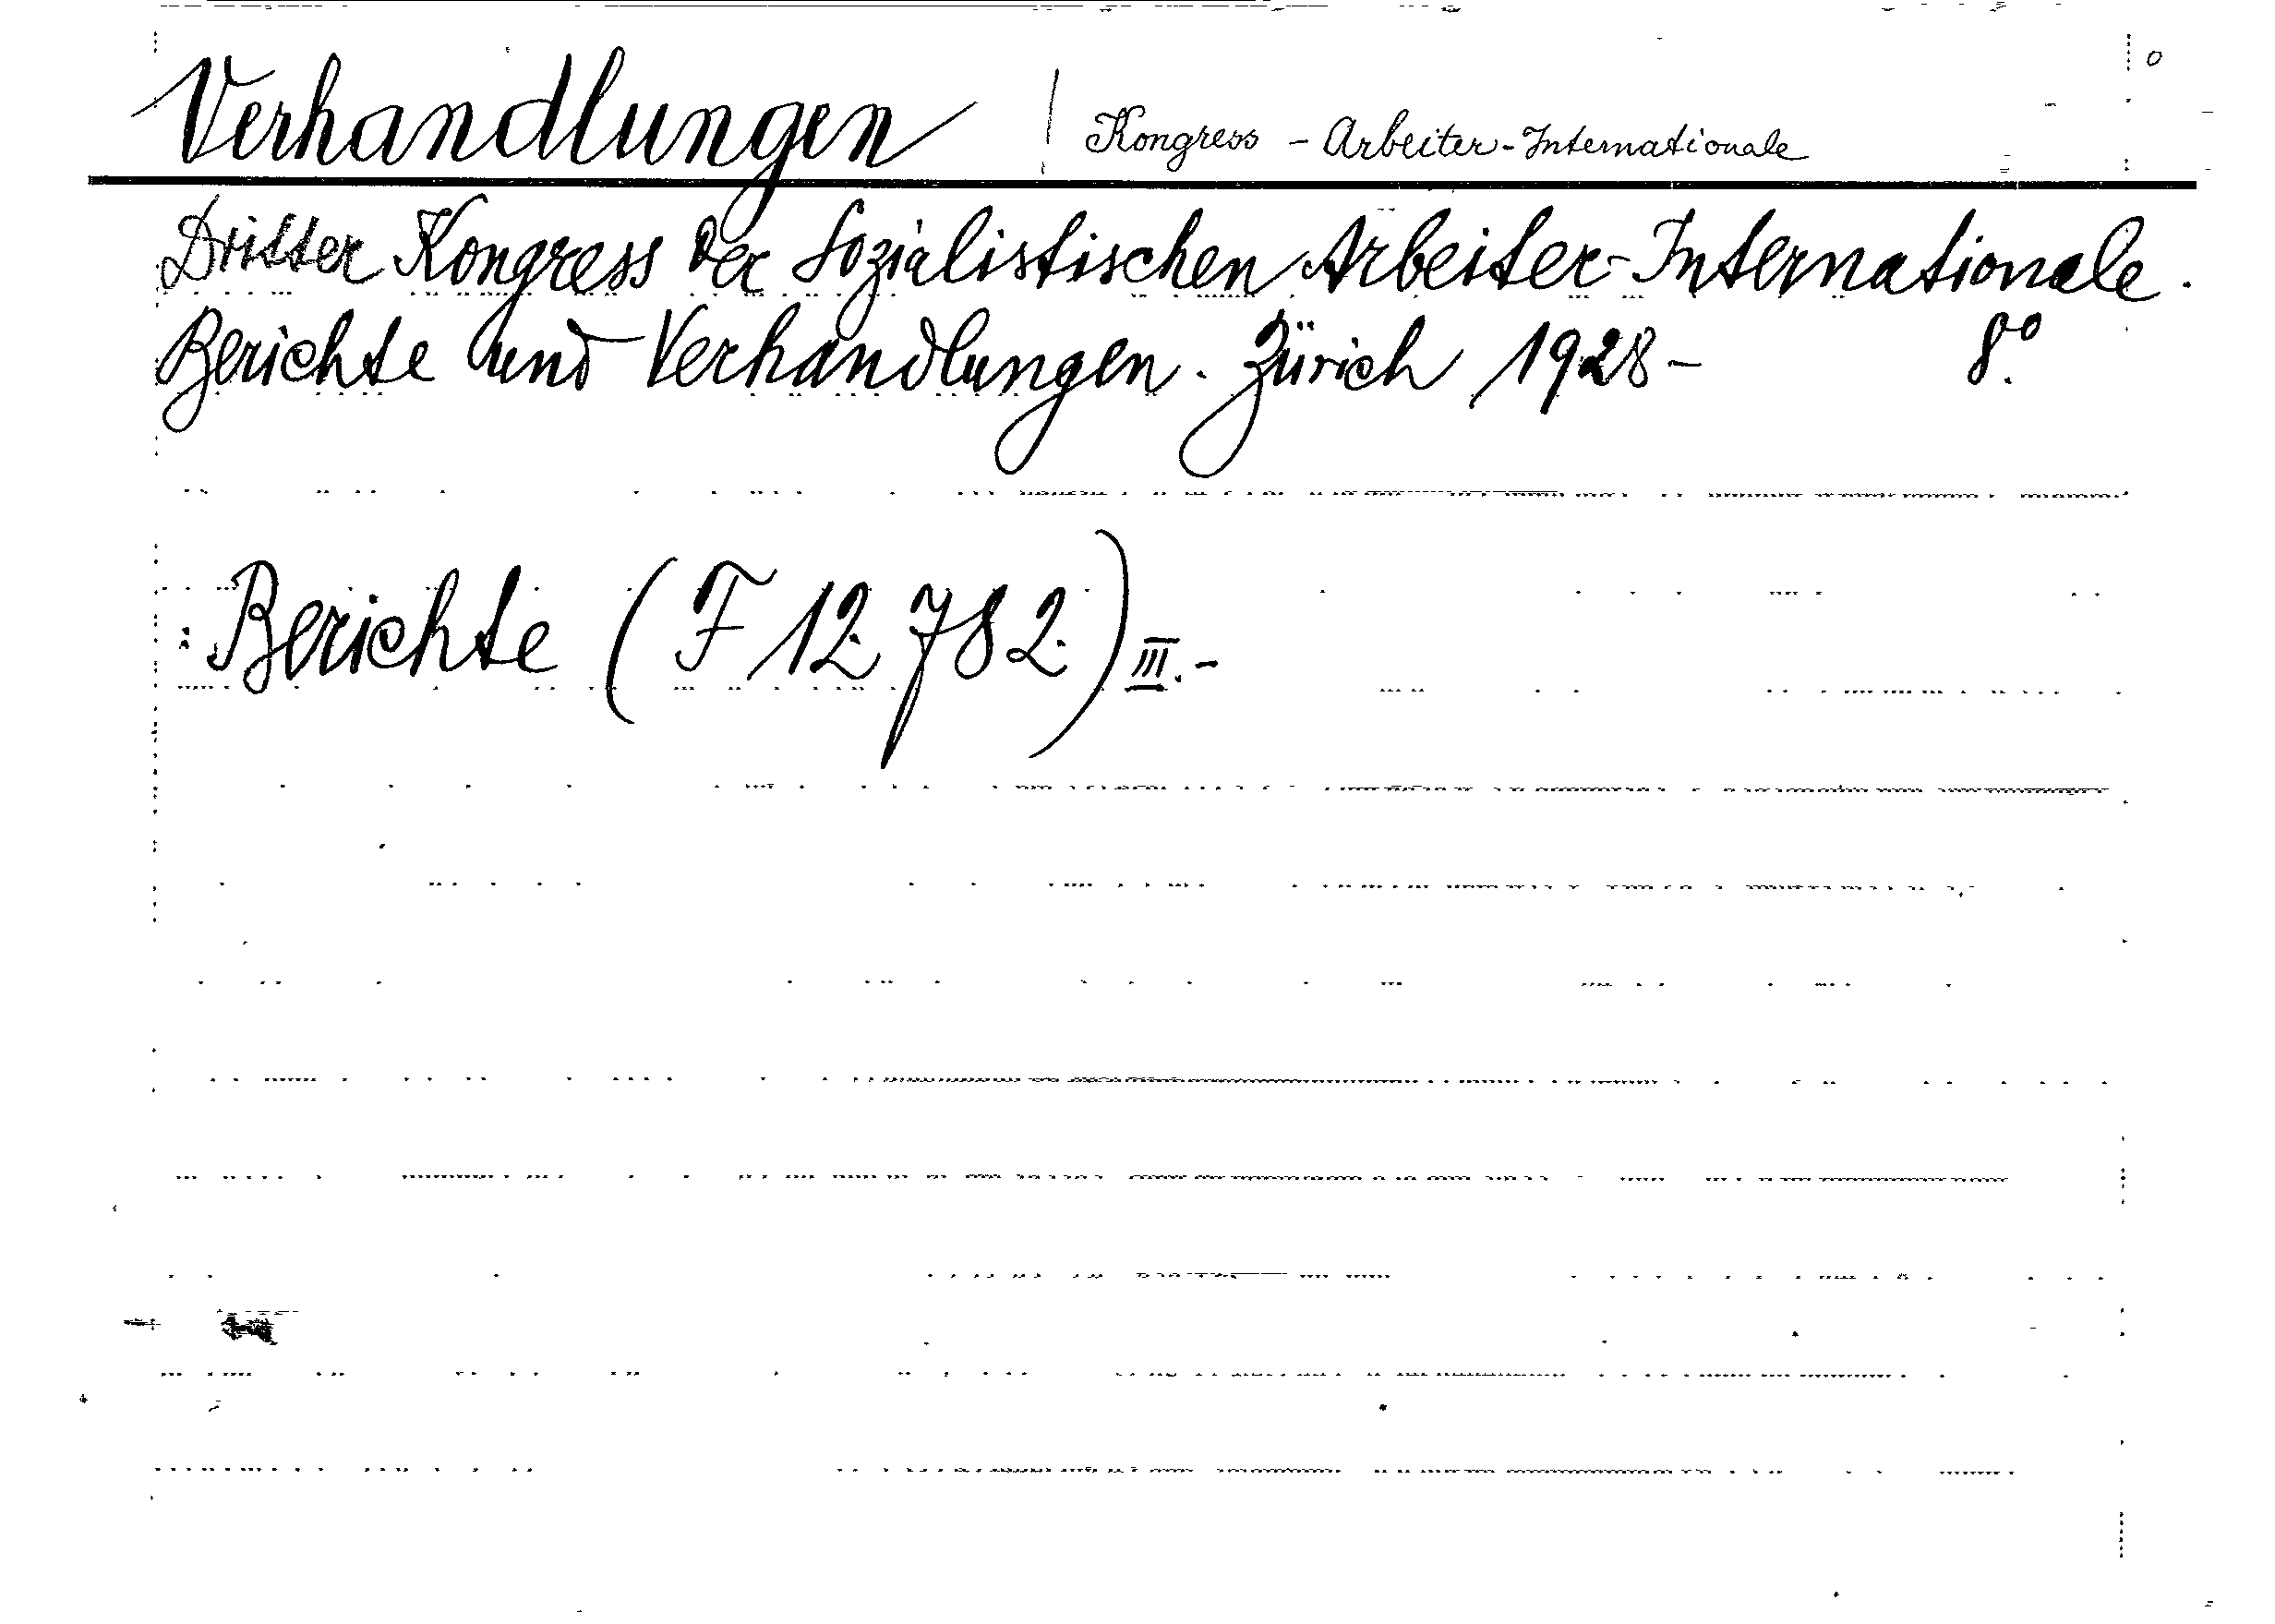 Verhandlungen | Kongress - Arbeiter-Internationale
Dritter Kongress der Sozialistischen Arbeiter-Internationale.
Berichte und Verhandlungen. Zürich 1928- 8°.
: Berichte (F 12 782) III.-